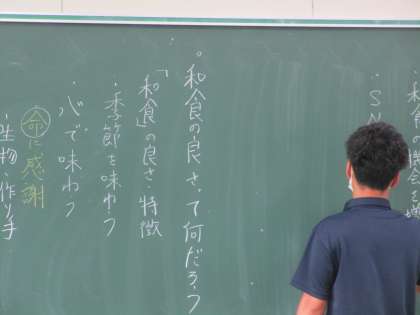 ・和食の機会を増
・SN
。和食の良さって何だろう
「和食」の良さ・特徴
・季節を味わう
・心で味わう
命に感謝
・生物・作り手